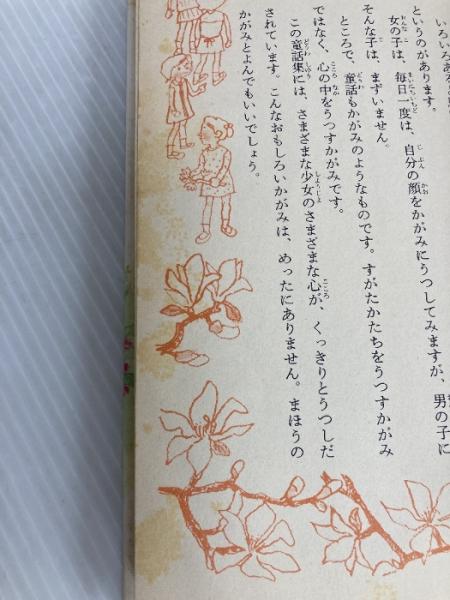 いろいろある
というのがあります。
女の子は、毎日一度は、自分の顔をかがみにうつしてみますが、男の子に
そんな子は、まずいません。
ところで、童話もかがみのようなものです。すがたかたちをうつすかがみ
ではなく、心の中をうつすかがみです。
この童話集には、さまざまな少女のさまざまな心が、くっきりとうつしだ
されています。こんなおもしろいかがみは、めったにありません。まほうの
かがみとよんでもいいでしょう。